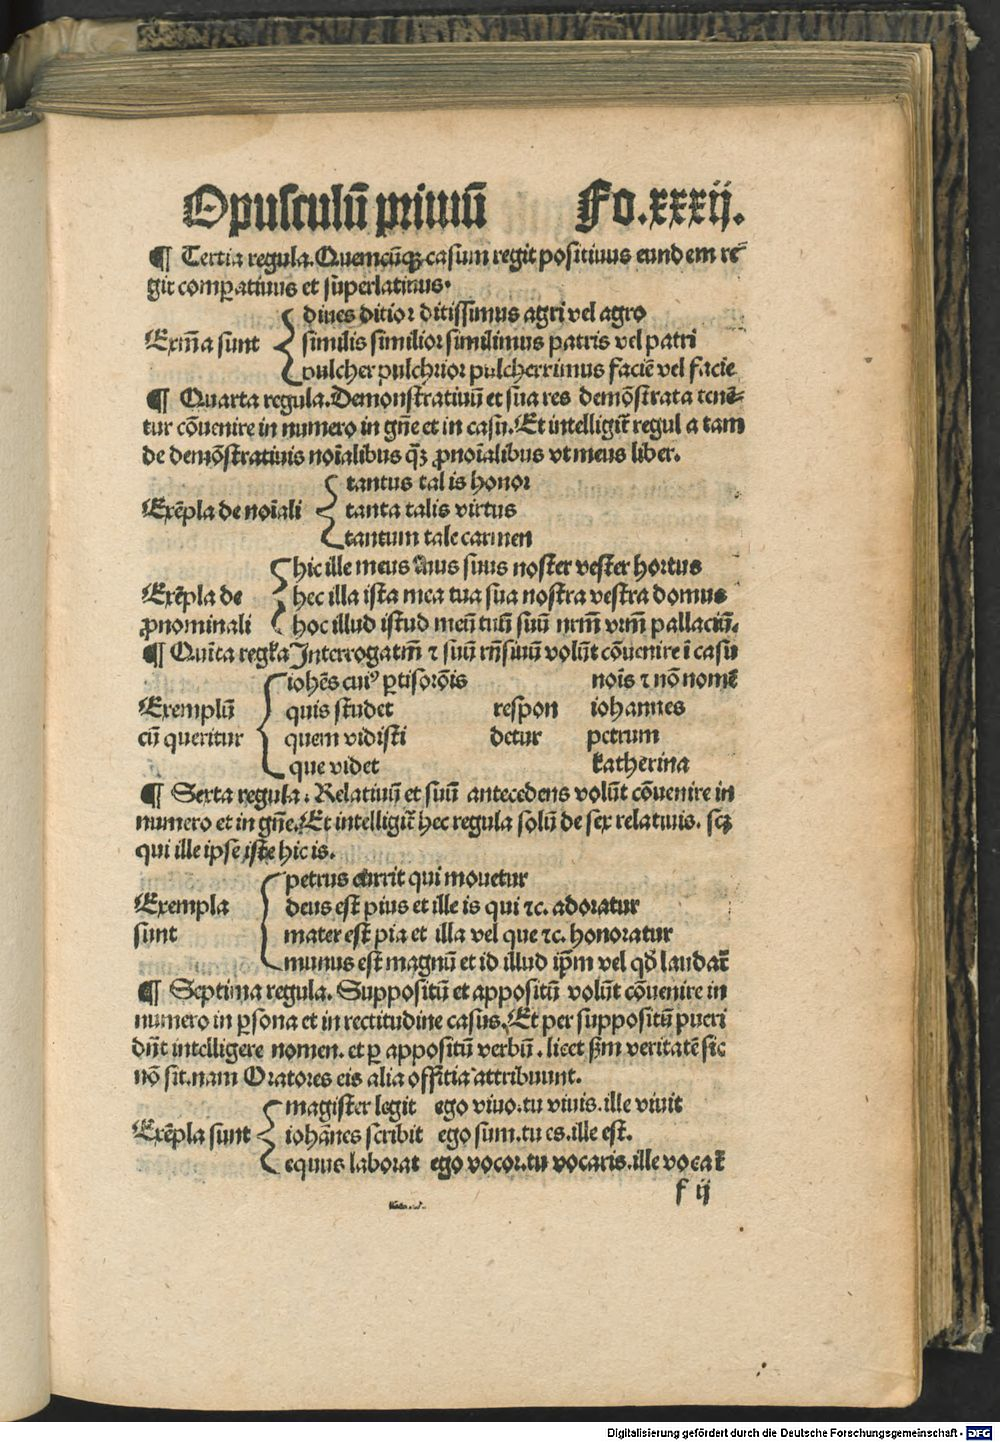 Opusculū primū Fo.xxxij.
¶ Tertia regula. Quemcūqꝫ casum regit positiuus eundem re
git comꝑatiuus et suꝑlatiuus.
diues ditior ditissimus agri vel agro
Exm̄a sunt similis similior similimus patris vel patri
pulcher pulchrior pulcherrimus faciē vel facie
¶ Quarta regula. Demonstratiuū et sua res demōstrata tenē-
tur cōuenire in numero in gn̄e et in casu. Et intelligit̄ regula tam
de demōstratiuis noīalibus qꝫ̄ ꝓnoīalibus vt meus liber.
tantus talis honor
Exēpla de noīali tanta talis virtus
tantum tale carmen
hic ille meus tuus suus noster vester hortus
Exēpla de hec illa ista mea tua sua nostra vestra domus
ꝓnominali hoc illud istud meū tuū suū nr̄m vr̄m pallaciū.
¶ Quīta regl̄a Interrogatiū ⁊ suū rn̄siuū volūt cōuenire ī casu
iohēs cuiꝰ ꝑtis orōis noīs ⁊ nō nomē
Exemplū quis studet respon iohannes
cū queritur quem vidisti detur petrum
que videt katherina
¶ Sexta regula. Relatiuū et suū antecedens volūt cōuenire in
numero et in gn̄e. Et intelligit̄ hec regula solū de sex relatiuis. scꝫ
qui ille ipse iste hic is.
petrus currit qui mouetur
Exempla deus est pius et ille is qui ⁊c. adoratur
sunt mater est pia et illa vel que ⁊c. honoratur
munus est magnū et id illud ip̄m vel qd̄ laudat̄
¶ Septima regula. Suppositū et appositū volūt cōuenire in
numero in ꝑsona et in rectitudine casus. Et per suppositū pueri
dn̄t intelligere nomen. et ꝑ appositū verbū. licet ẜm veritatē sic
nō sit. nam Oratores eis alia offitia attribuunt.
magister legit ego viuo. tu viuis. ille viuit
Exēpla sunt iohānes scribit ego sum. tu es. ille est.
equus laborat ego vocor. tu vocaris. ille vocat̄
f ij
Digitalisierung gefördert durch die Deutsche Forschungsgemeinschaft - DFG